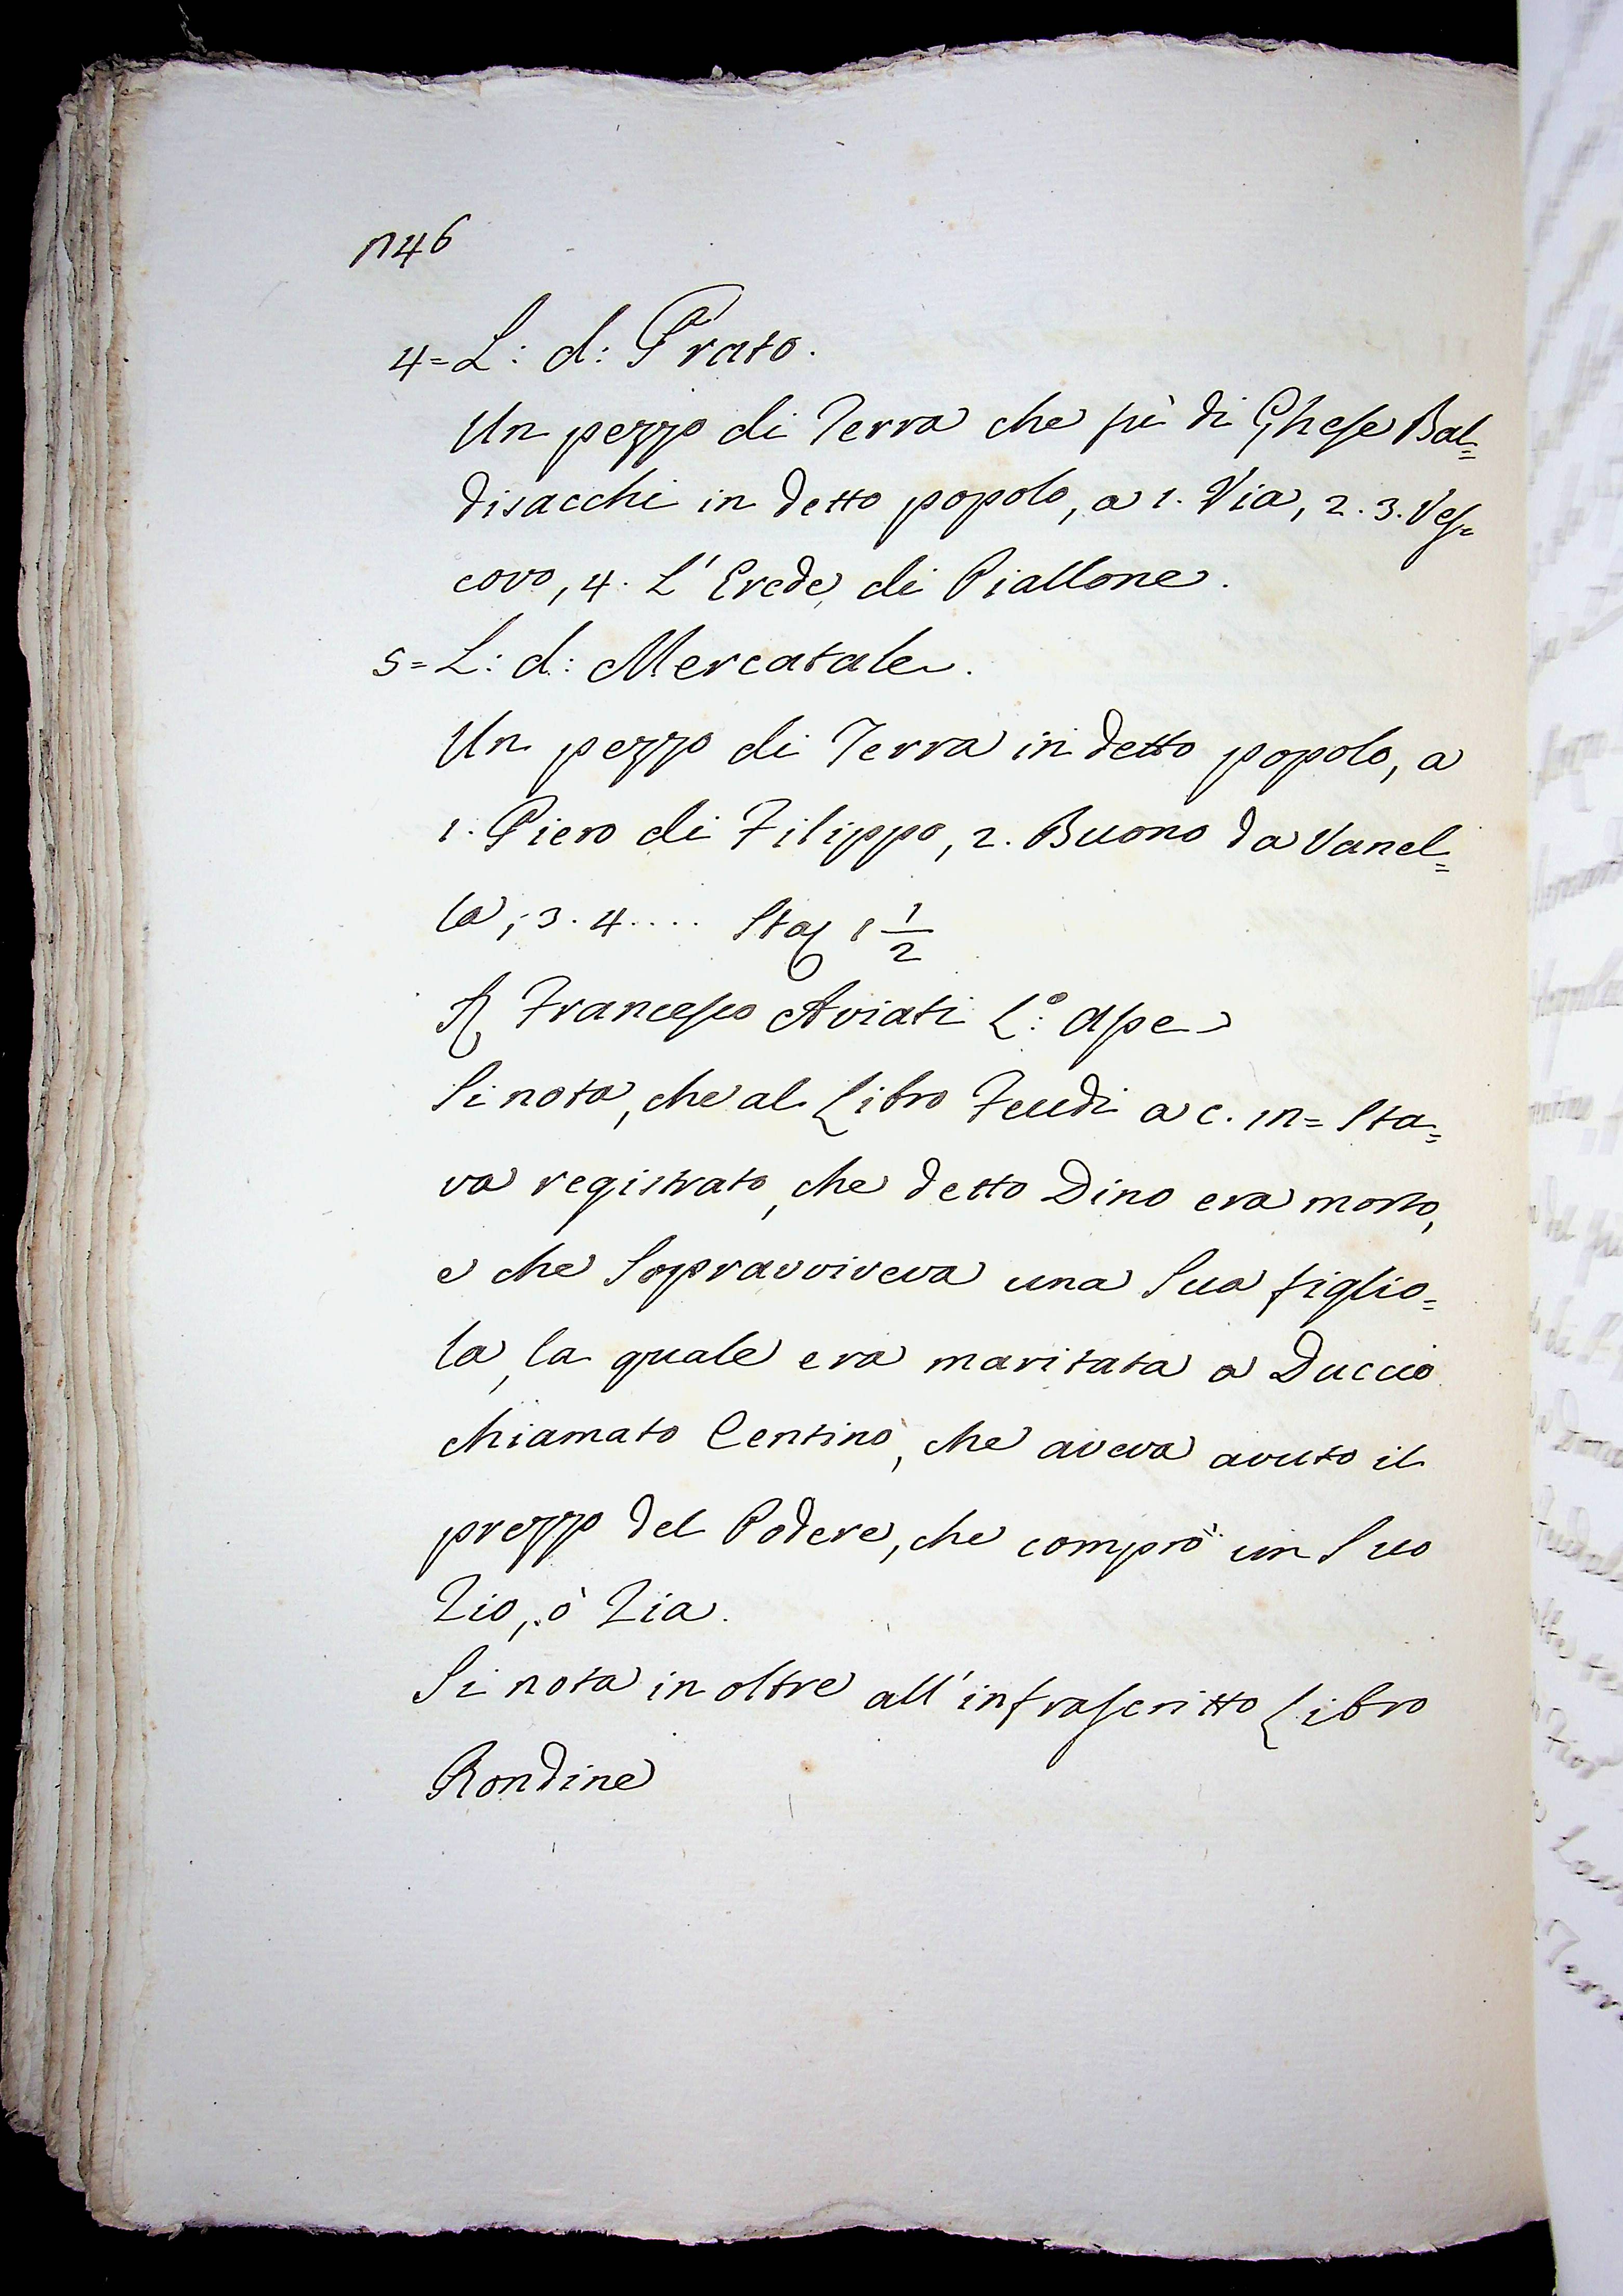 1146
4 = L: d: Prato.
Un pezzo di Terra che fù di Ghese Bal=
disacchi in detto popolo, a 1. Via, 2. 3. Ves=
covo, 4. L'Erede di Piallone.
5 = L: d: Mercatale.
Un pezzo di Terra in detto popolo, a
1. Piero di Filippo, 2. Buono da Vanel=
la, 3. 4.... Sta 1 1/2
Francesco Aviati L.º Ape
Si nota, che al Libro Feudi a c. 111 = Sta=
va registrato, che detto Dino era morto,
e che Sopravviveva una Sua figlio=
la, la quale era maritata a Duccio
chiamato Centino, che aveva avuto il
prezzo del Podere, che comprò un Suo
Zio, ò Zia.
Si nota in oltre all'infrascritto Libro
Rondine